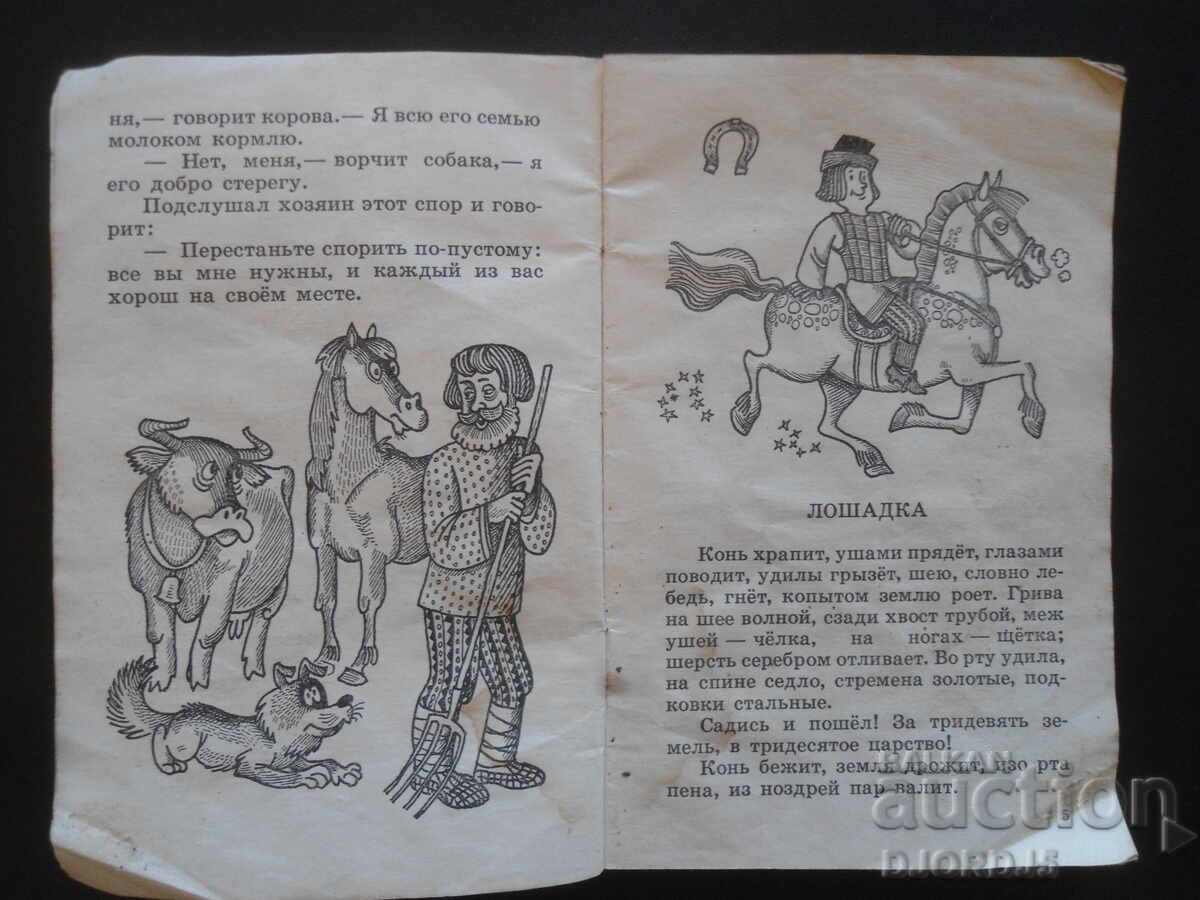 ня,— говорит корова.— Я всю его семью
молоком кормлю.
— Нет, меня,— ворчит собака,— я
его добро стерегу.
Подслушал хозяин этот спор и гово-
рит:
— Перестаньте спорить по-пустому:
все вы мне нужны, и каждый из вас
хорош на своём месте.
ЛОШАДКА
Конь храпит, ушами прядёт, глазами
поводит, удилы грызёт, шею, словно ле-
бедь, гнёт, копытом землю роет. Грива
на шее волной, сзади хвост трубой, меж
ушей — чёлка, на ногах — щётка;
шерсть серебром отливает. Во рту удила,
на спине седло, стремена золотые, под-
ковки стальные.
Садись и пошёл! За тридевять зе-
мель, в тридесятое царство!
Конь бежит, земля дрожит, изо рта
пена, из ноздрей пар валит.
5
BALKAN
auction
DJORDJ5